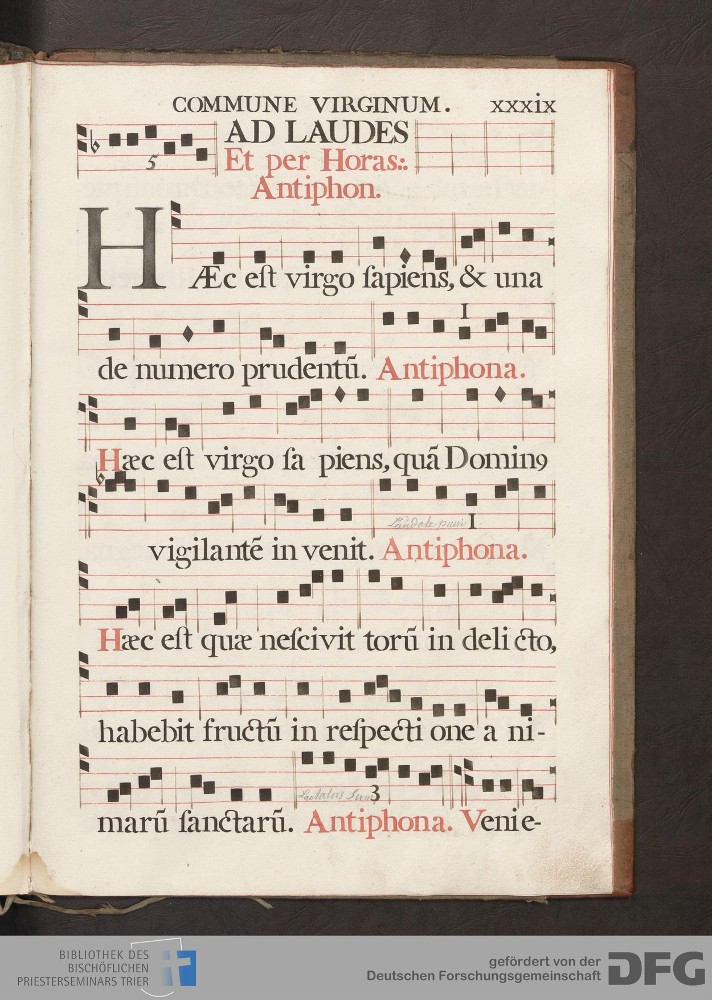 COMMUNE VIRGINUM. XXXIX
AD LAUDES
5 Et per Horas:.
Antiphon.
HÆc eſt virgo ſapiens, & una
1
de numero prudentū. Antiphona.
Hæc eſt virgo ſa piens, quā Dominꝯ
Laudate pueri 1
vigilantē in venit. Antiphona.
Hæc eſt quæ neſcivit torū in deli cto,
habebit fructū in reſpecti one a ni-
3
marū ſanctarū. Antiphona. Venie-
BIBLIOTHEK DES
BISCHÖFLICHEN
PRIESTERSEMINARS TRIER
gefördert von der
Deutschen Forschungsgemeinschaft DFG